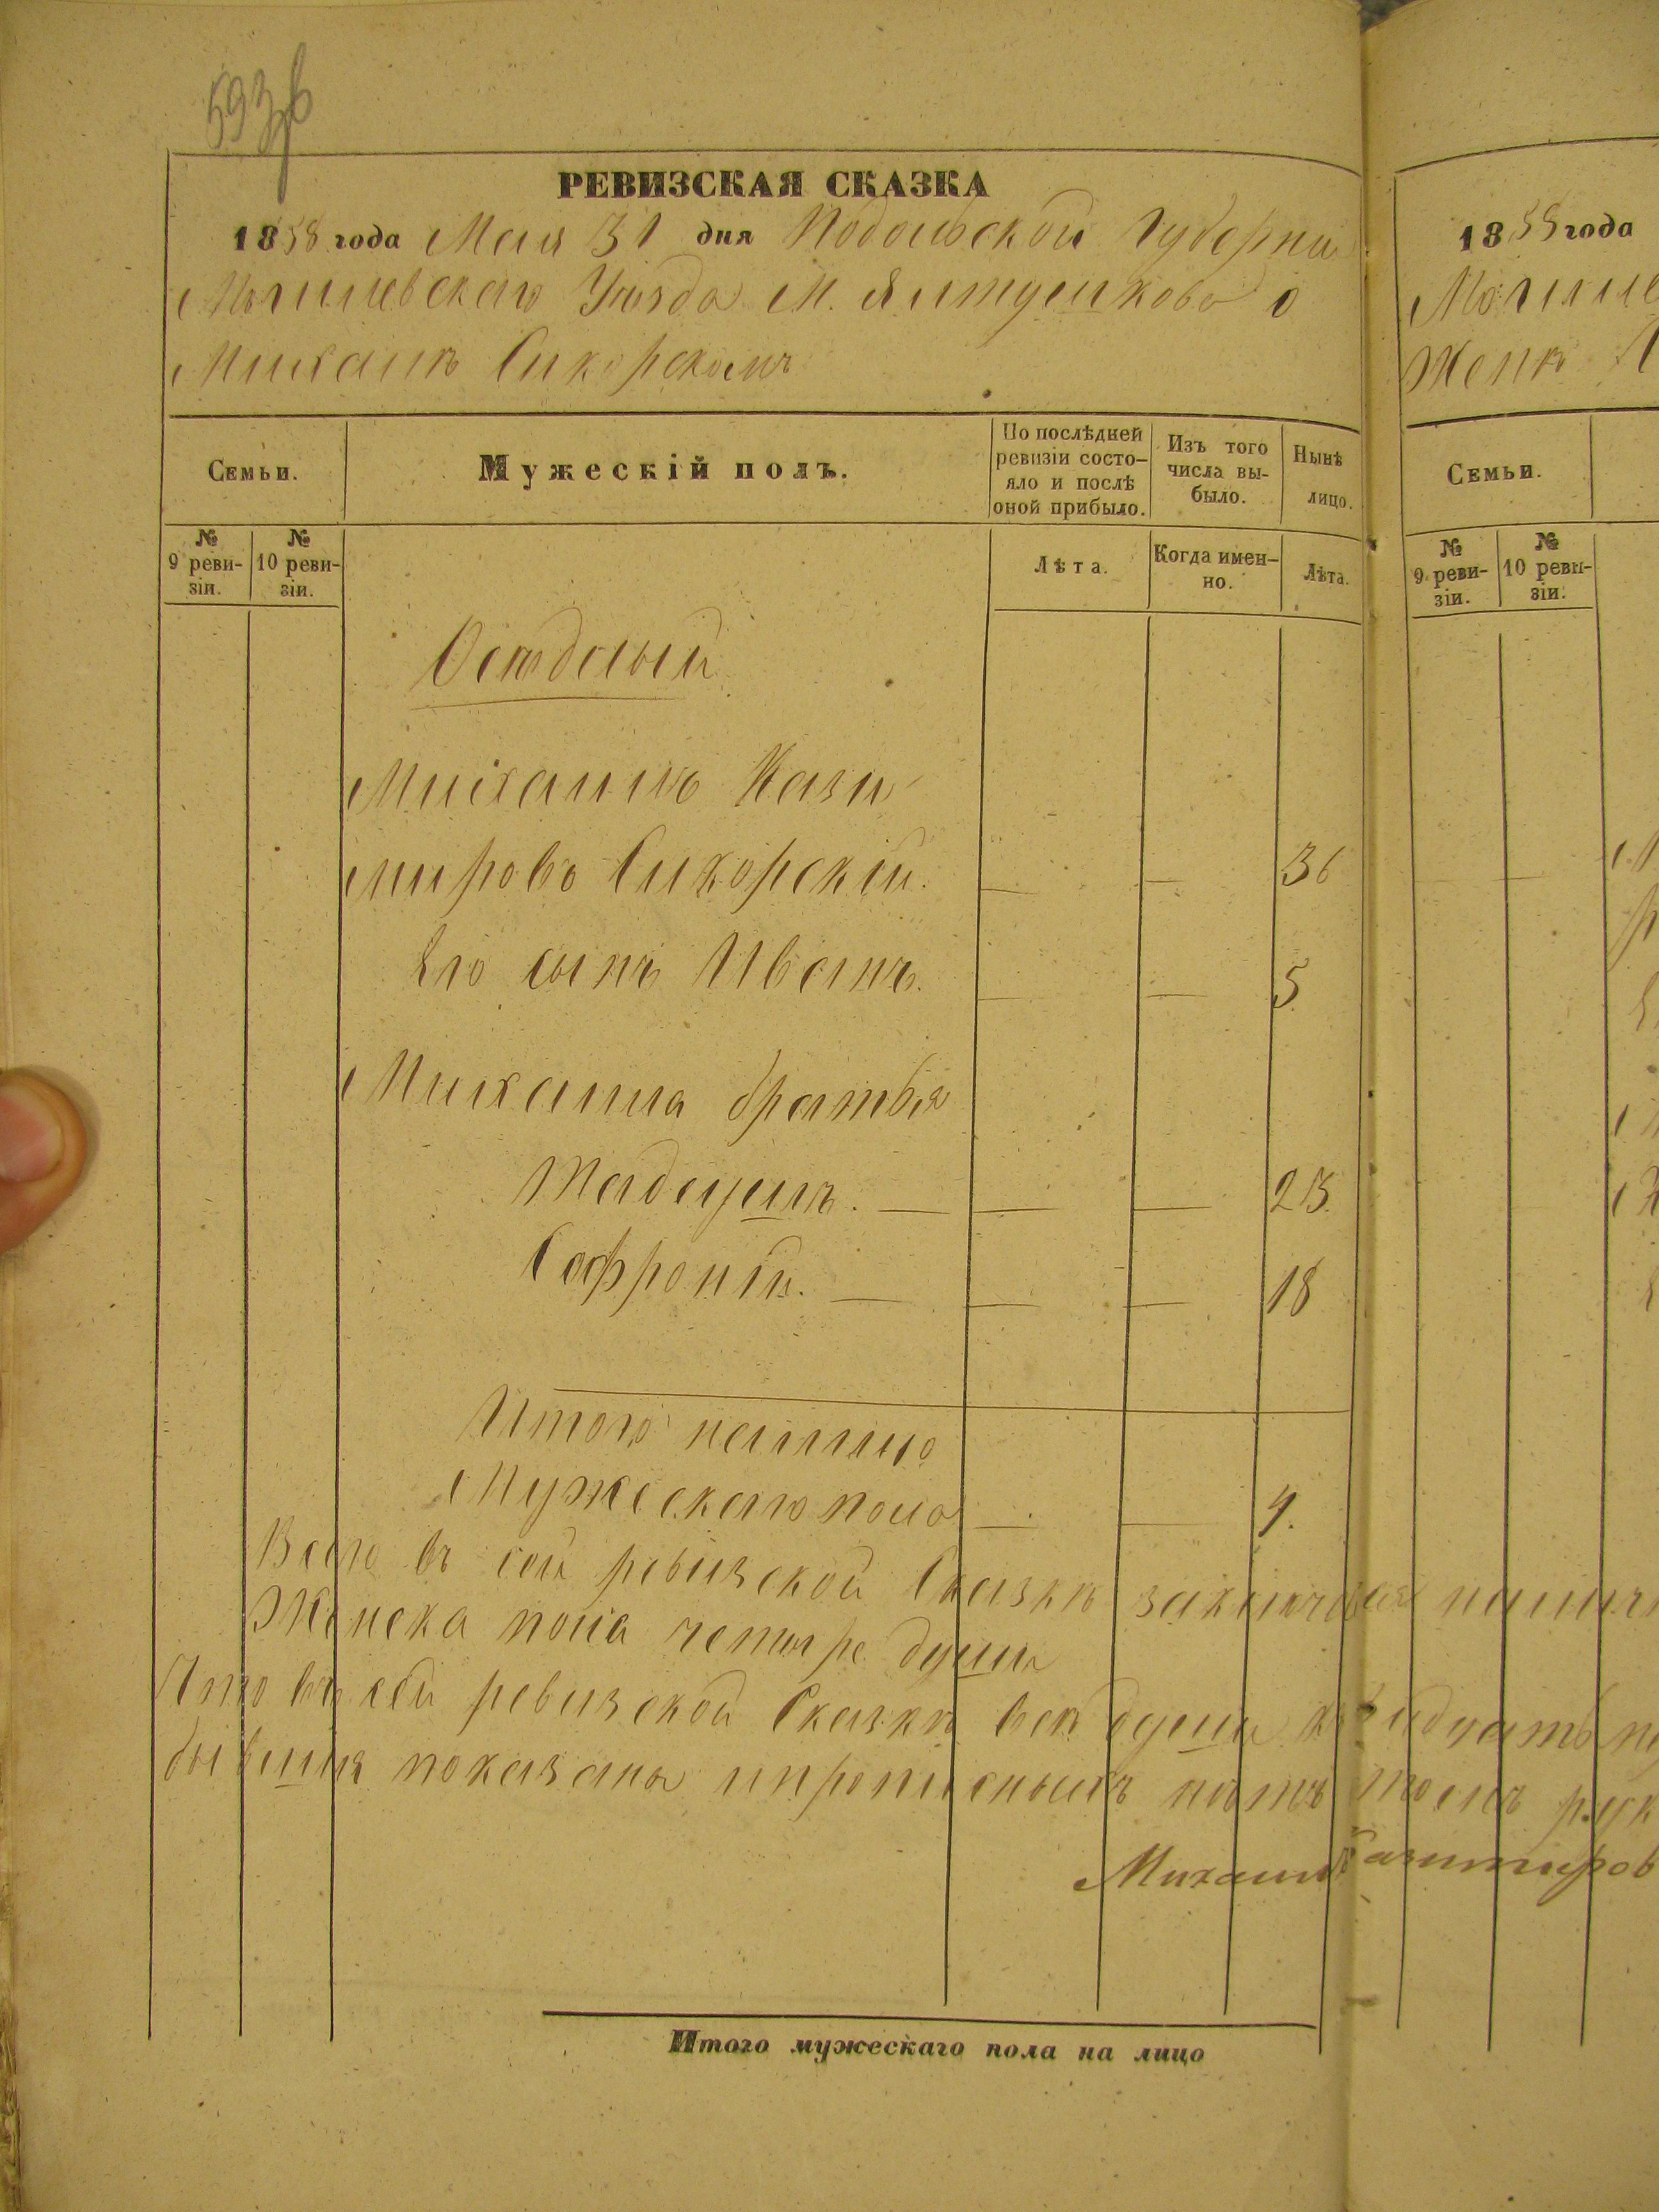 593 в
РЕВИЗСКАЯ СКАЗКА
1858 года Мая 31 дня Подольской Губерніи
Могилевскаго Уѣзда М. Ялтушкова о
Михаилѣ Сикорскомъ
Семьи.
Мужескій полъ.
По послѣдней ревизіи состо-
яло и послѣ оной прибыло.
Изъ того числа вы-
было.
Нынѣ лицо.
№ 9 реви-
зіи.
№ 10 реви-
зіи.
Лѣта.
Когда имен-
но.
Лѣта.
Осѣдлый
Михаилъ Кази-
мировъ Сикорскій. — — 36
Его сынъ Иванъ. — — 5
Михаила братья
Тадеушъ. — — — 23
Софроній. — — — 18
Итого налицо
Мужескаго пола — — 4.
Всего въ сей ревизской Сказкѣ
Женска пола четыре души
Что въ сей ревизской Сказкѣ всѣ души къ
показаны и прописныхъ нѣтъ въ томъ рук
Михаилъ Казимиров
Итого мужескаго пола на лицо
1858 года
Могиле
Женѣ
Семьи.
№ 9 реви-
зіи.
№ 10 реви-
зіи.